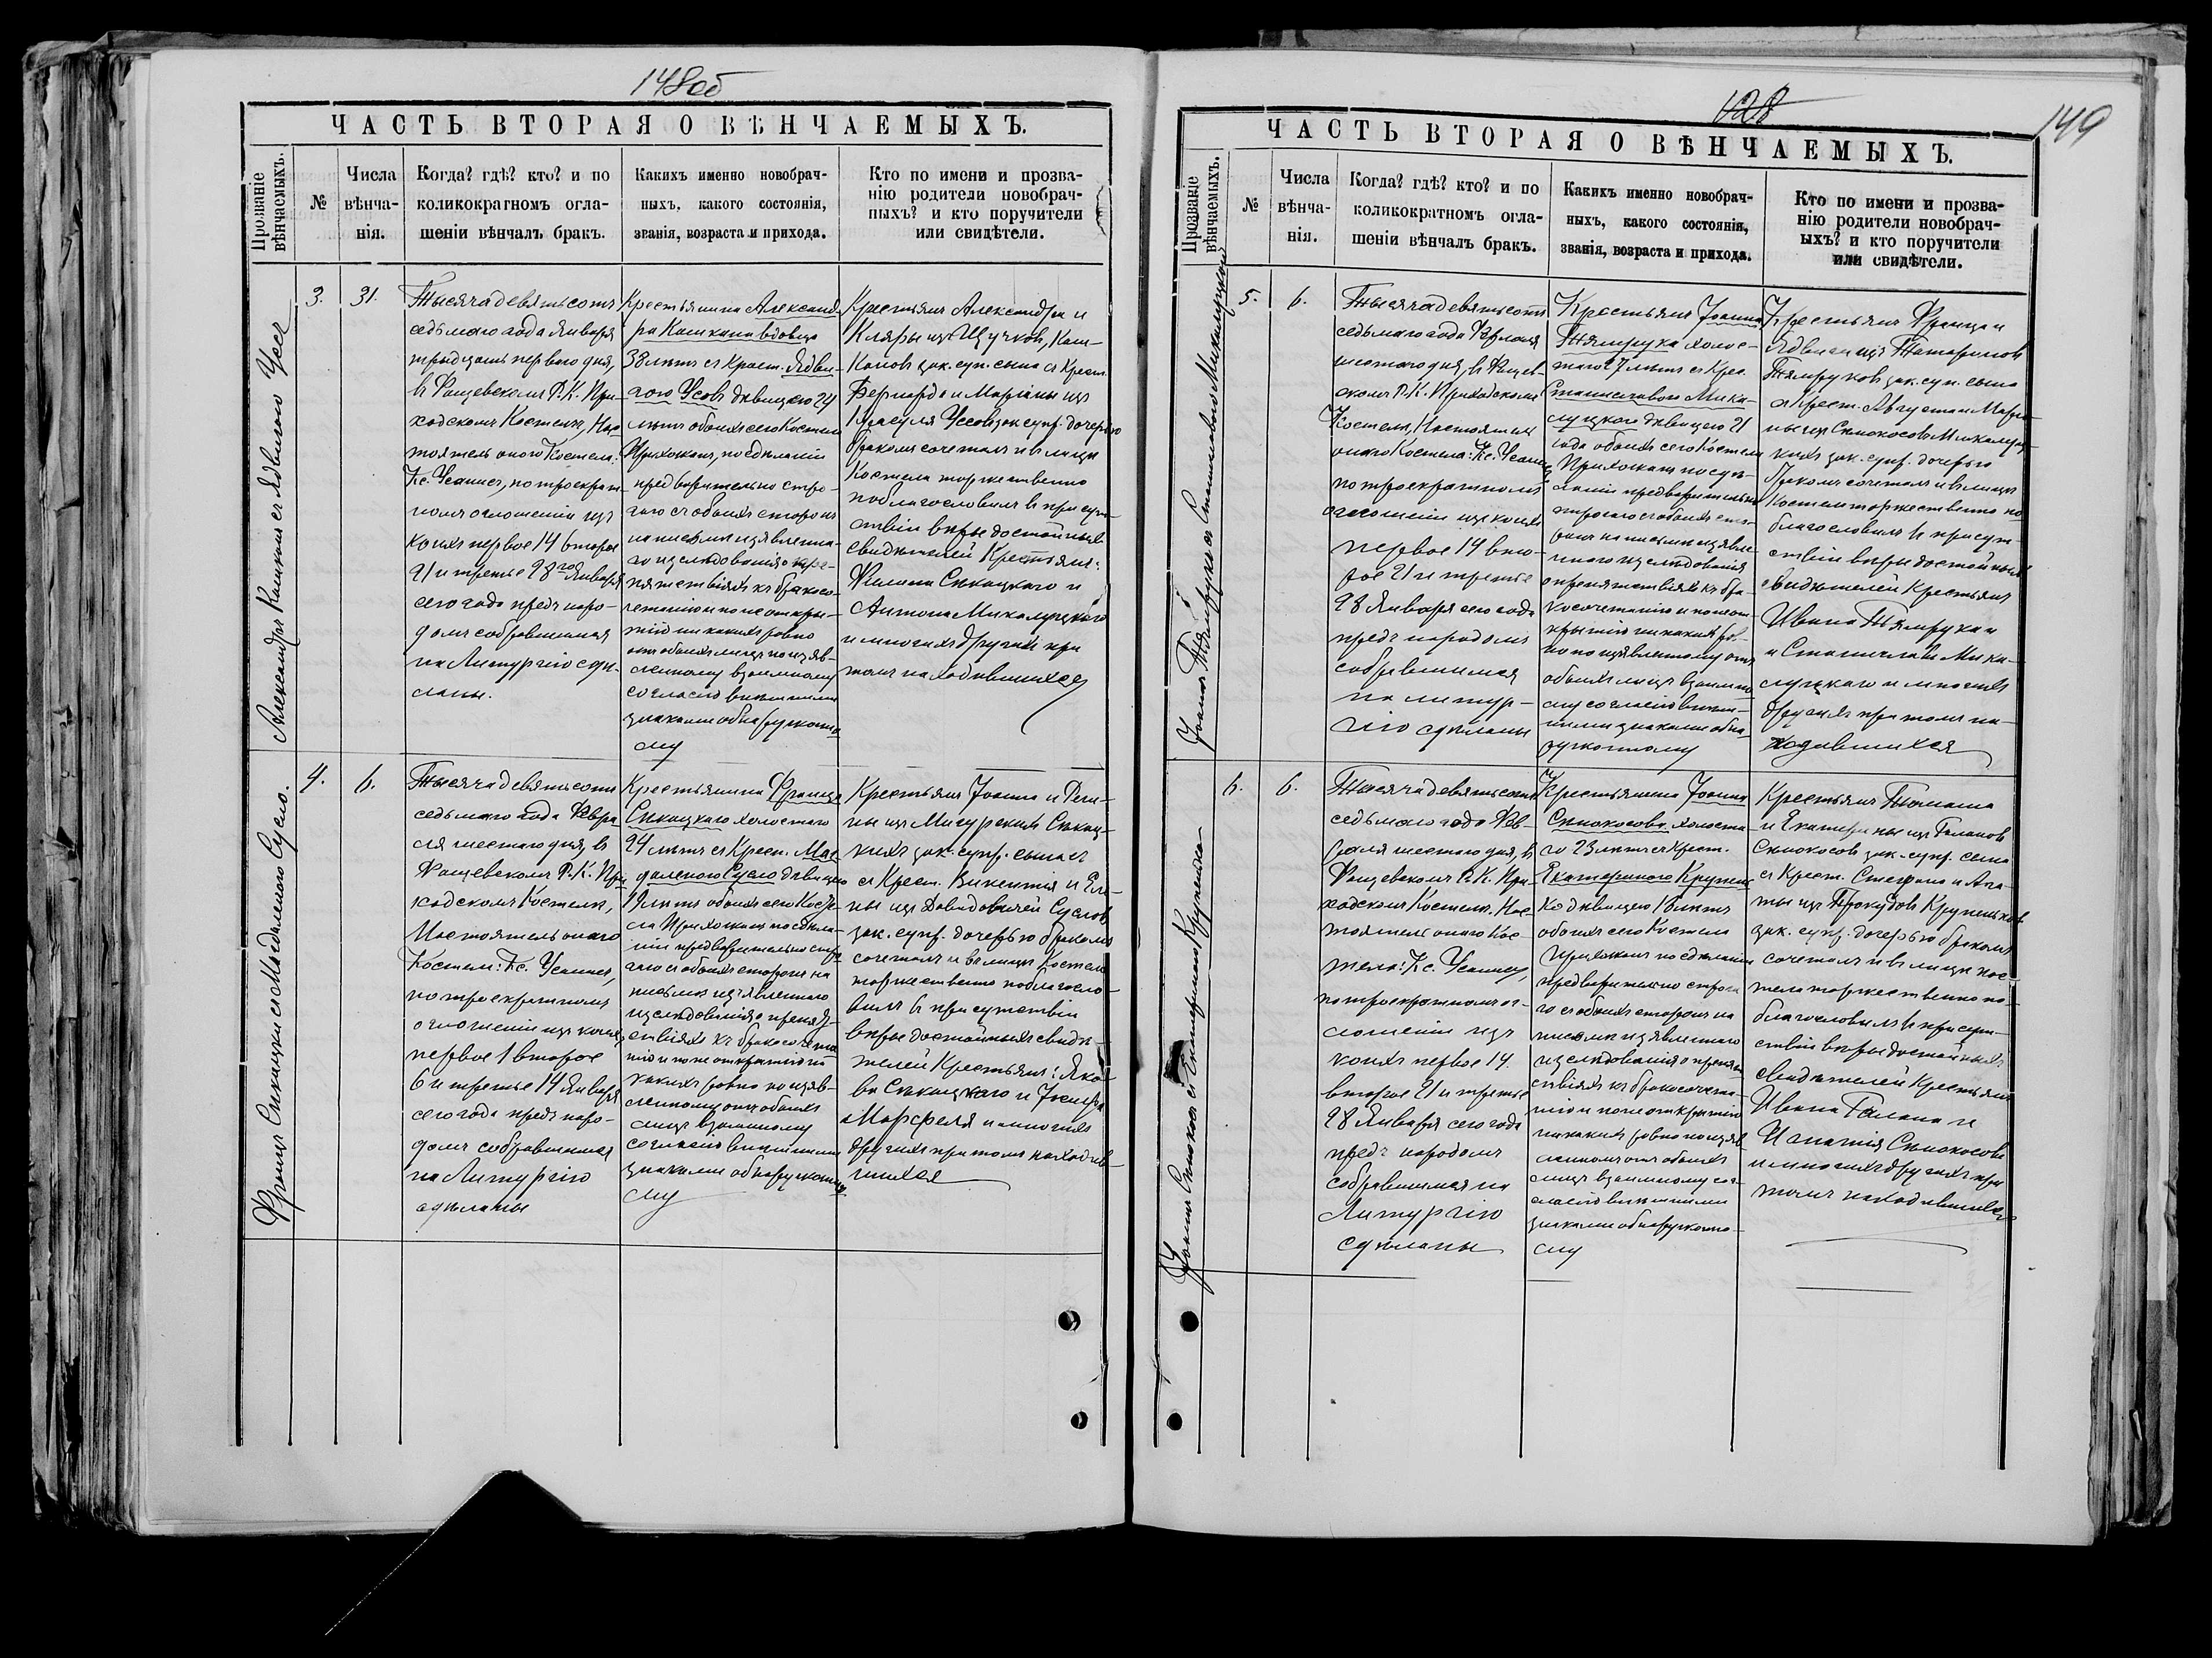 148об
ЧАСТЬ ВТОРАЯ О ВѢНЧАЕМЫХЪ.
Прозваніе вѣнчаемыхъ.
№
Числа вѣнча-
нія.
Когда? гдѣ? кто? и по
коликократномъ огла-
шеніи вѣнчалъ бракъ.
Какихъ именно новобрач-
ныхъ, какого состоянія,
званія, возраста и прихода.
Кто по имени и прозва-
нію родители новобрач-
ныхъ? и кто поручители
или свидѣтели.
Александръ Кашканъ съ Ядвигою Усъ
3.
31.
Тысяча девятьсотъ
седьмаго года Января
тридцать перваго дня,
въ Фащевскомъ Р. К. При-
ходскомъ Костелѣ, Нас-
тоятель онаго Костела:
Кс. Усаинсъ, по троекрат-
номъ оглошеніи изъ
коихъ первое 14 второе
21 и третье 28го Января
сего года предъ наро-
домъ собравшимся
на Литургію сдѣ-
ланы.
Крестьянина Александ-
ра Кашкана вдовца
38 лѣтъ съ Крест. Ядви-
гою Усовъ дѣвицею 24
лѣтъ обоихъ сего Костела
Прихожанъ, по сдѣланіи
предварительно стро-
гаго съ обоихъ сторонъ
на письмѣ изъявленна-
го изслѣдованія о пре-
пятствіяхъ къ бракосо-
четанію и по не откры-
тію никакихъ ровно
отъ обоихъ лицъ по изъяв-
ленному взаимному
согласію внѣшними
знаками обнаруженно-
му
Крестьянъ Александра и
Кляры изъ Щучковъ, Каш-
кановъ зак. суп. сына съ Крест.
Бернарда и Маріаны изъ
Усовъ зак. супр. дочерью
бракомъ сочеталъ и въ лицѣ
Костела торжественно
поблагословилъ въ присут-
ствіи вѣры достойныхъ
свидѣтелей Крестьянъ:
Антона Микалуцкаго
и многихъ другихъ при
томъ находившихся
Францъ Сикацкій съ Магдаленою Сусло.
4.
6.
Тысяча девятьсотъ
седьмаго года Февра-
ля шестаго дня, въ
Фащевскомъ Р. К. При-
ходскомъ Костелѣ,
Настоятель онаго
Костела: Кс. Усаинсъ,
по троекратномъ
оглошеніи изъ коихъ
первое 1 второе
6 и третье 14 Января
сего года предъ наро-
домъ собравшимся
на Литургію
сдѣланы
Крестьянина Франца
Сикацкаго холостаго
24 лѣтъ съ Крест. Маг-
даленою Сусло дѣвицею
19 лѣтъ обоихъ сего Косте-
ла Прихожанъ по сдѣла-
ніи предварительно стро-
гаго съ обоихъ сторонъ на
письмѣ изъявленнаго
изслѣдованія о препят-
ствіяхъ къ бракосочета-
нію и по не открытію ни
какихъ ровно по изъяв-
ленному отъ обоихъ
лицъ взаимному
согласію внѣшними
знаками обнаруженно-
му
Крестьянъ Іоанна и Реги-
ны изъ Мигурскихъ Сикац-
кихъ зак. супр. сына
съ Крест. Викентія и Еле-
ны изъ Давидовичей Суслов
зак. супр. дочерью бракомъ
сочеталъ и въ лицѣ Костела
торжественно поблагосло-
вилъ въ присутствіи
вѣры достойныхъ свидѣ-
телей Крестьянъ: Яко-
ва Сикацкаго и Іосифа
Марфеля и многихъ
другихъ притомъ находив-
шихся
128
149
ЧАСТЬ ВТОРАЯ О ВѢНЧАЕМЫХЪ.
Прозваніе вѣнчаемыхъ.
№
Числа вѣнча-
нія.
Когда? гдѣ? кто? и по
коликократномъ огла-
шеніи вѣнчалъ бракъ.
Какихъ именно новобрач-
ныхъ, какого состоянія,
званія, возраста и прихода.
Кто по имени и прозва-
нію родители новобрач-
ыхъ? и кто поручители
или свидѣтели.
Іоаннъ Тямрукъ съ Станиславою Микалуцкой
5.
6.
Тысяча девятьсотъ
седьмаго года Февраля
шестаго дня, въ Фащев-
скомъ Р. К. Приходскомъ
Костелѣ, Настоятель
онаго Костела: Кс. Усаинсъ
по троекратномъ
оглошеніи изъ коихъ
первое 14 вто-
рое 21 и третье
28 Января сего года
предъ народомъ
собравшимся
на литур-
гію сдѣланы
Крестьянъ Іоанна
Тямрука холос-
таго 27 лѣтъ съ Крес.
Станиславою Мика-
луцкою дѣвицею 21
года обоихъ сего Костела
Прихожанъ по сдѣ-
ланіи предварительно
строгаго съ обоихъ сто-
ронъ на письмѣ изъявле-
ннаго изслѣдованія
о препятствіяхъ къ бра-
косочетанію и по не от-
крытію никакихъ ров-
но по изъявленному отъ
обоихъ лицъ взаимно-
му согласію внѣш-
ними знаками обна-
руженному
Крестьянъ Франца и
Ядвиги изъ Татариновъ
Тямруковъ зак. суп. сына
съ Крест. Августа и Маріа-
ны изъ Синокосовъ Микалуц-
кихъ зак. супр. дочерью
бракомъ сочеталъ и въ лицѣ
Костела торжественно по-
благословилъ въ присут-
ствіи вѣры достойныхъ
свидѣтелей Крестьянъ
Ивана Тямрука и
и Станислава Мика-
луцкаго и многихъ
другихъ при томъ на-
ходившихся
Іоаннъ Синокосъ съ Екатериною Крупенько
6.
6.
Тысяча девятьсотъ
седьмаго года Фев-
раля шестаго дня, въ
Фащевскомъ Р. К. При-
ходскомъ Костелѣ, Нас-
тоятель онаго Кос-
тела: Кс. Усаинсъ,
по троекратномъ ог-
лошеніи изъ
коихъ первое 14.
второе 21 и третье
28 Января сего года
предъ народомъ
собравшимся на
Литургію
сдѣланы
Крестьянина Іоанна
Синокосова холоста-
го 23 лѣтъ съ Крест.
Екатериною Крупень-
ко дѣвицею 18 лѣтъ
обоихъ сего Костела
Прихожанъ по сдѣланіи
предварительно строга-
го съ обоихъ сторонъ на
письмѣ изъявленнаго
изслѣдованія о препят-
ствіяхъ къ бракосочета-
нію и по не открытію
никакихъ ровно по изъяв-
ленному отъ обоихъ
лицъ взаимному сог-
ласію внѣшними
знаками обнаруженно-
му
Крестьянъ Томаша
и Екатерины изъ Галановъ
Синокосовъ зак. супр. сына
съ Крест. Стефана и Ага-
ты изъ Прокудовъ Крупеньковъ
зак. супр. дочерью бракомъ
сочеталъ и въ лицѣ Кос-
тела торжественно по-
благословилъ въ присут-
ствіи вѣры достойныхъ
свидѣтелей Крестьянъ
Ивана Галана и
Игнатія Синокосова
и многихъ другихъ при
томъ находившихся